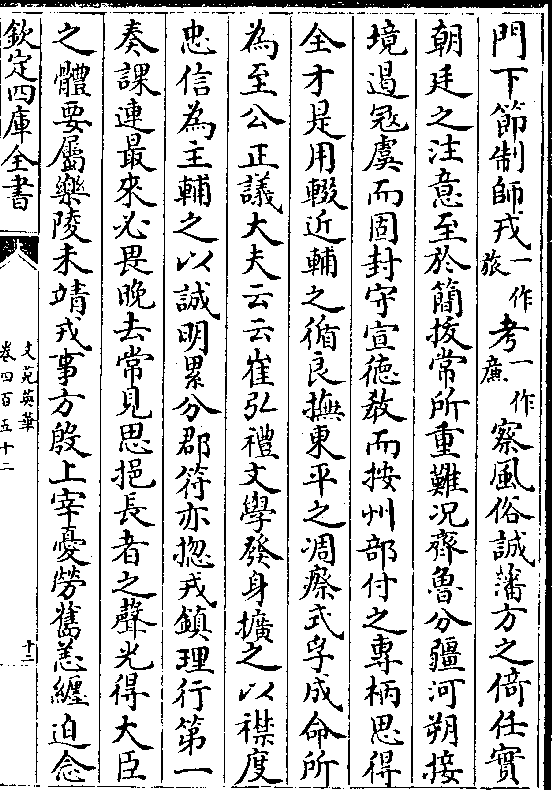 門下節制師戎一作旅考一作廉察風俗誠藩方之倚任實
朝廷之注意至於簡拔常所重難况齊魯分疆河朔接
境遏冦虞而固封守宣徳教而按州部付之專柄思得
全才是用輟近輔之循良撫東平之凋瘵式孚成命所
為至公正議大夫云云崔弘禮文學發身擴之以襟度
忠信為主輔之以誠明累分郡符亦揔戎鎮理行第一
奏課連最來必畏晚去常見思挹長者之聲光得大臣
之體要屬樂陵未靖戎事方殷上宰憂勞舊恙纏迫念
欽定四庫全書
文苑英華
卷四百五十二
十二